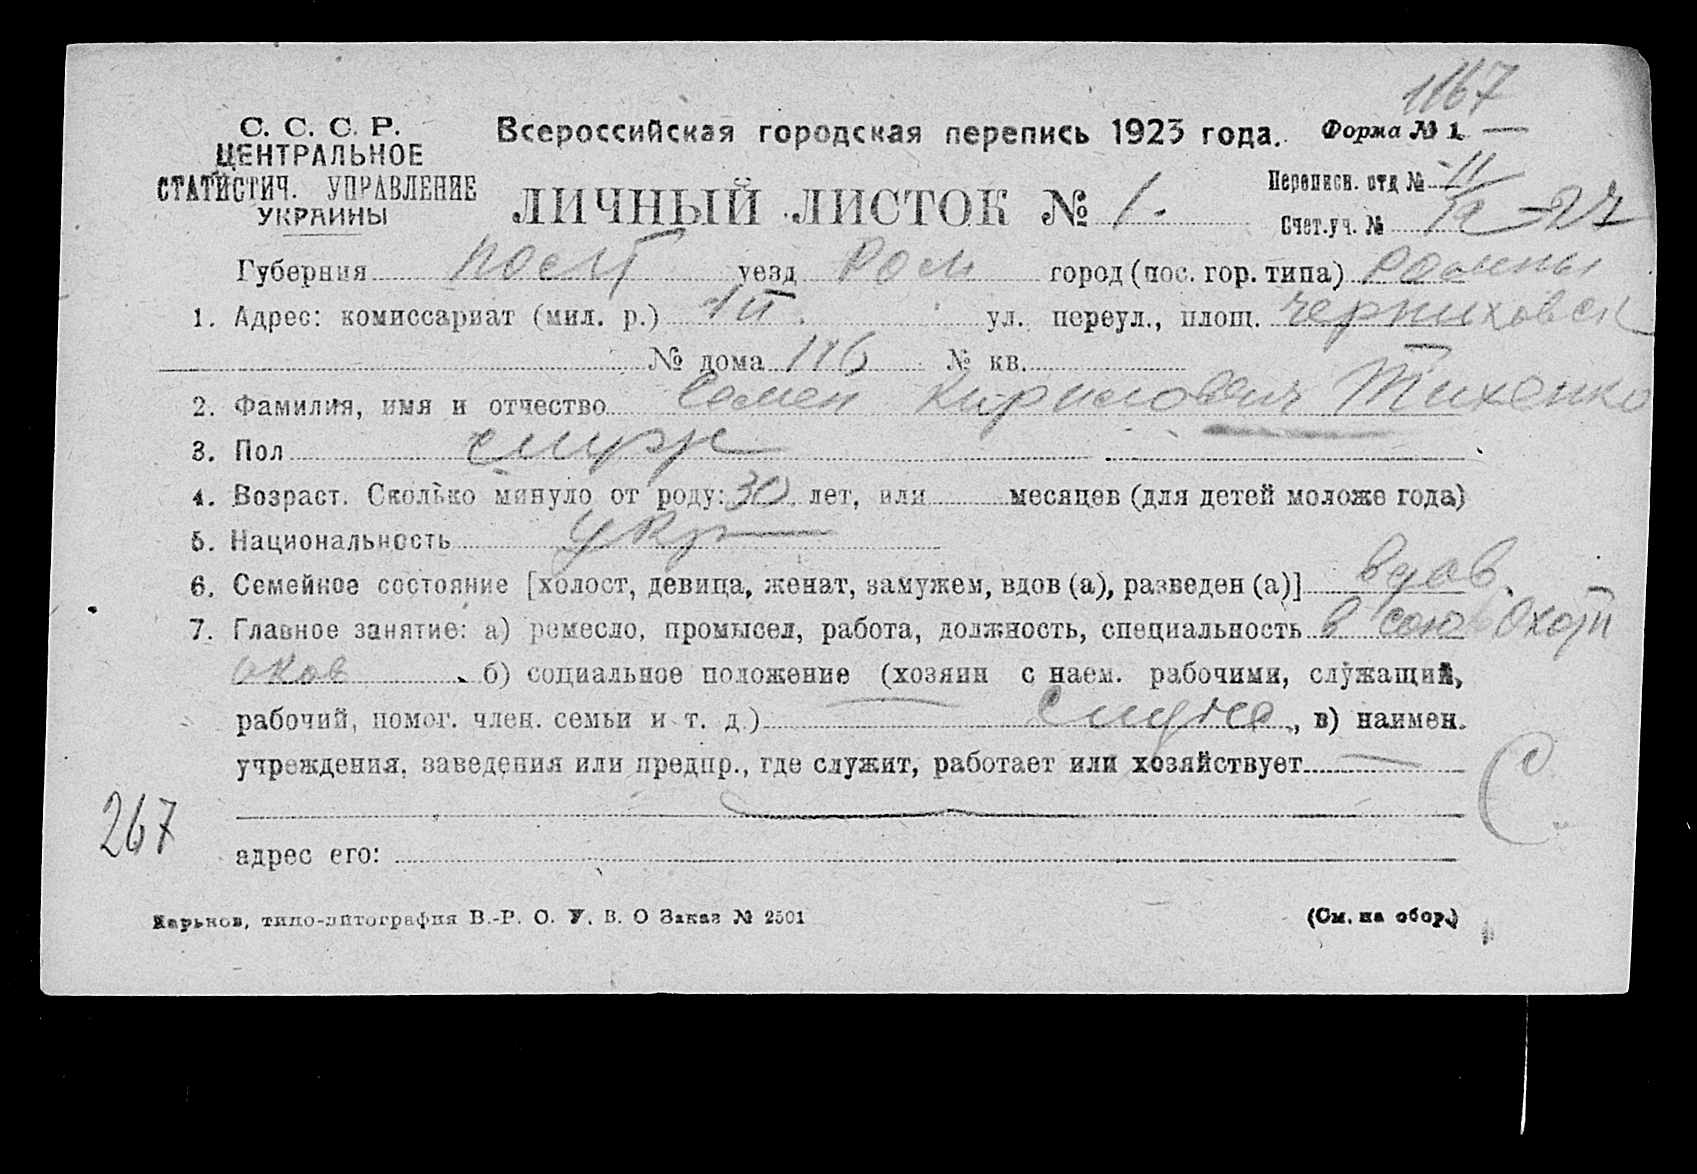 1167
С. С. С. Р.
ЦЕНТРАЛЬНОЕ
СТАТИСТИЧ. УПРАВЛЕНИЕ
УКРАИНЫ
Всероссийская городская перепись 1923 года. Форма № 1
ЛИЧНЫЙ ЛИСТОК № 1.
Переписн. отд № 11
Счет.уч. № 12 - 27
Губерния Полт уезд Ром город (пос. гор. типа) Ромны
1. Адрес: комиссариат (мил. р.) 1й ул. переул., площ. Черниховск
№ дома 116 № кв.
2. Фамилия, имя и отчество Семен Кирилович Тихенко
3. Пол муж
4. Возраст. Сколько минуло от роду: 30 лет, или месяцев (для детей моложе года)
5. Национальность укр
6. Семейное состояние [холост, девица, женат, замужем, вдов (а), разведен (а)] вдов.
7. Главное занятие: а) ремесло, промысел, работа, должность, специальность в союз Охотн
иков б) социальное положение (хозяин с наем. рабочими, служащий,
рабочий, помог. член. семьи и т. д.) служа, в) наимен.
учреждения, заведения или предпр., где служит, работает или хозяйствует
С
267
адрес его:
Харьков, типо-литография В.-Р. О. У. В. О Заказ № 2501 (См. на обор.)